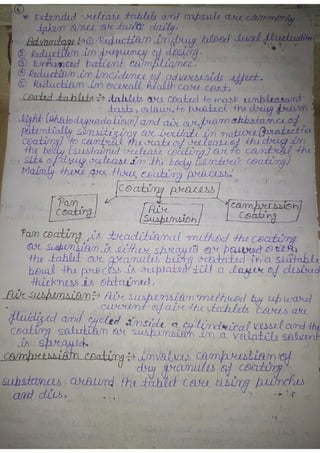 6
* Extended-release tablets and capsule are commonly
taken once or twice daily.
Advantage :- ① Reduction in drug blood level fluctuation
② Reduction in frequency of dosing.
③ Enhanced patient compliance.
④ Reduction in incidence of adverse side effect.
⑤ Reduction in overall healthcare cost.
Coated tablets :- tablets are coated to mask unpleasant
taste, odour, to protect the drug from
light (photodegradation) and air or from substance of
potentially sensitizing or irritate in nature (Protective
coating) to control the rate of release of the drug in
the body (sustained release coating) or to control the
site of drug release in the body (enteric coating)
Mainly there are three coating process.
Coating process
Pan coating
Air Suspension
Compression Coating
Pan coating is traditional method the coating
or suspension is either sprayed or poured over
the tablet or granules being rotated in a suitable
bowl the process is repeated till a layer of desired
thickness is obtained.
Air suspension :- Air suspension method by upward
current of air the tablets cores are
fluidized and cycled inside a cylindrical vessel and the
coating solution or suspension in a volatile solvent
is sprayed.
compression coating :- involves compression of
dry granules of coating
substances around the tablet core using punches
and dies.